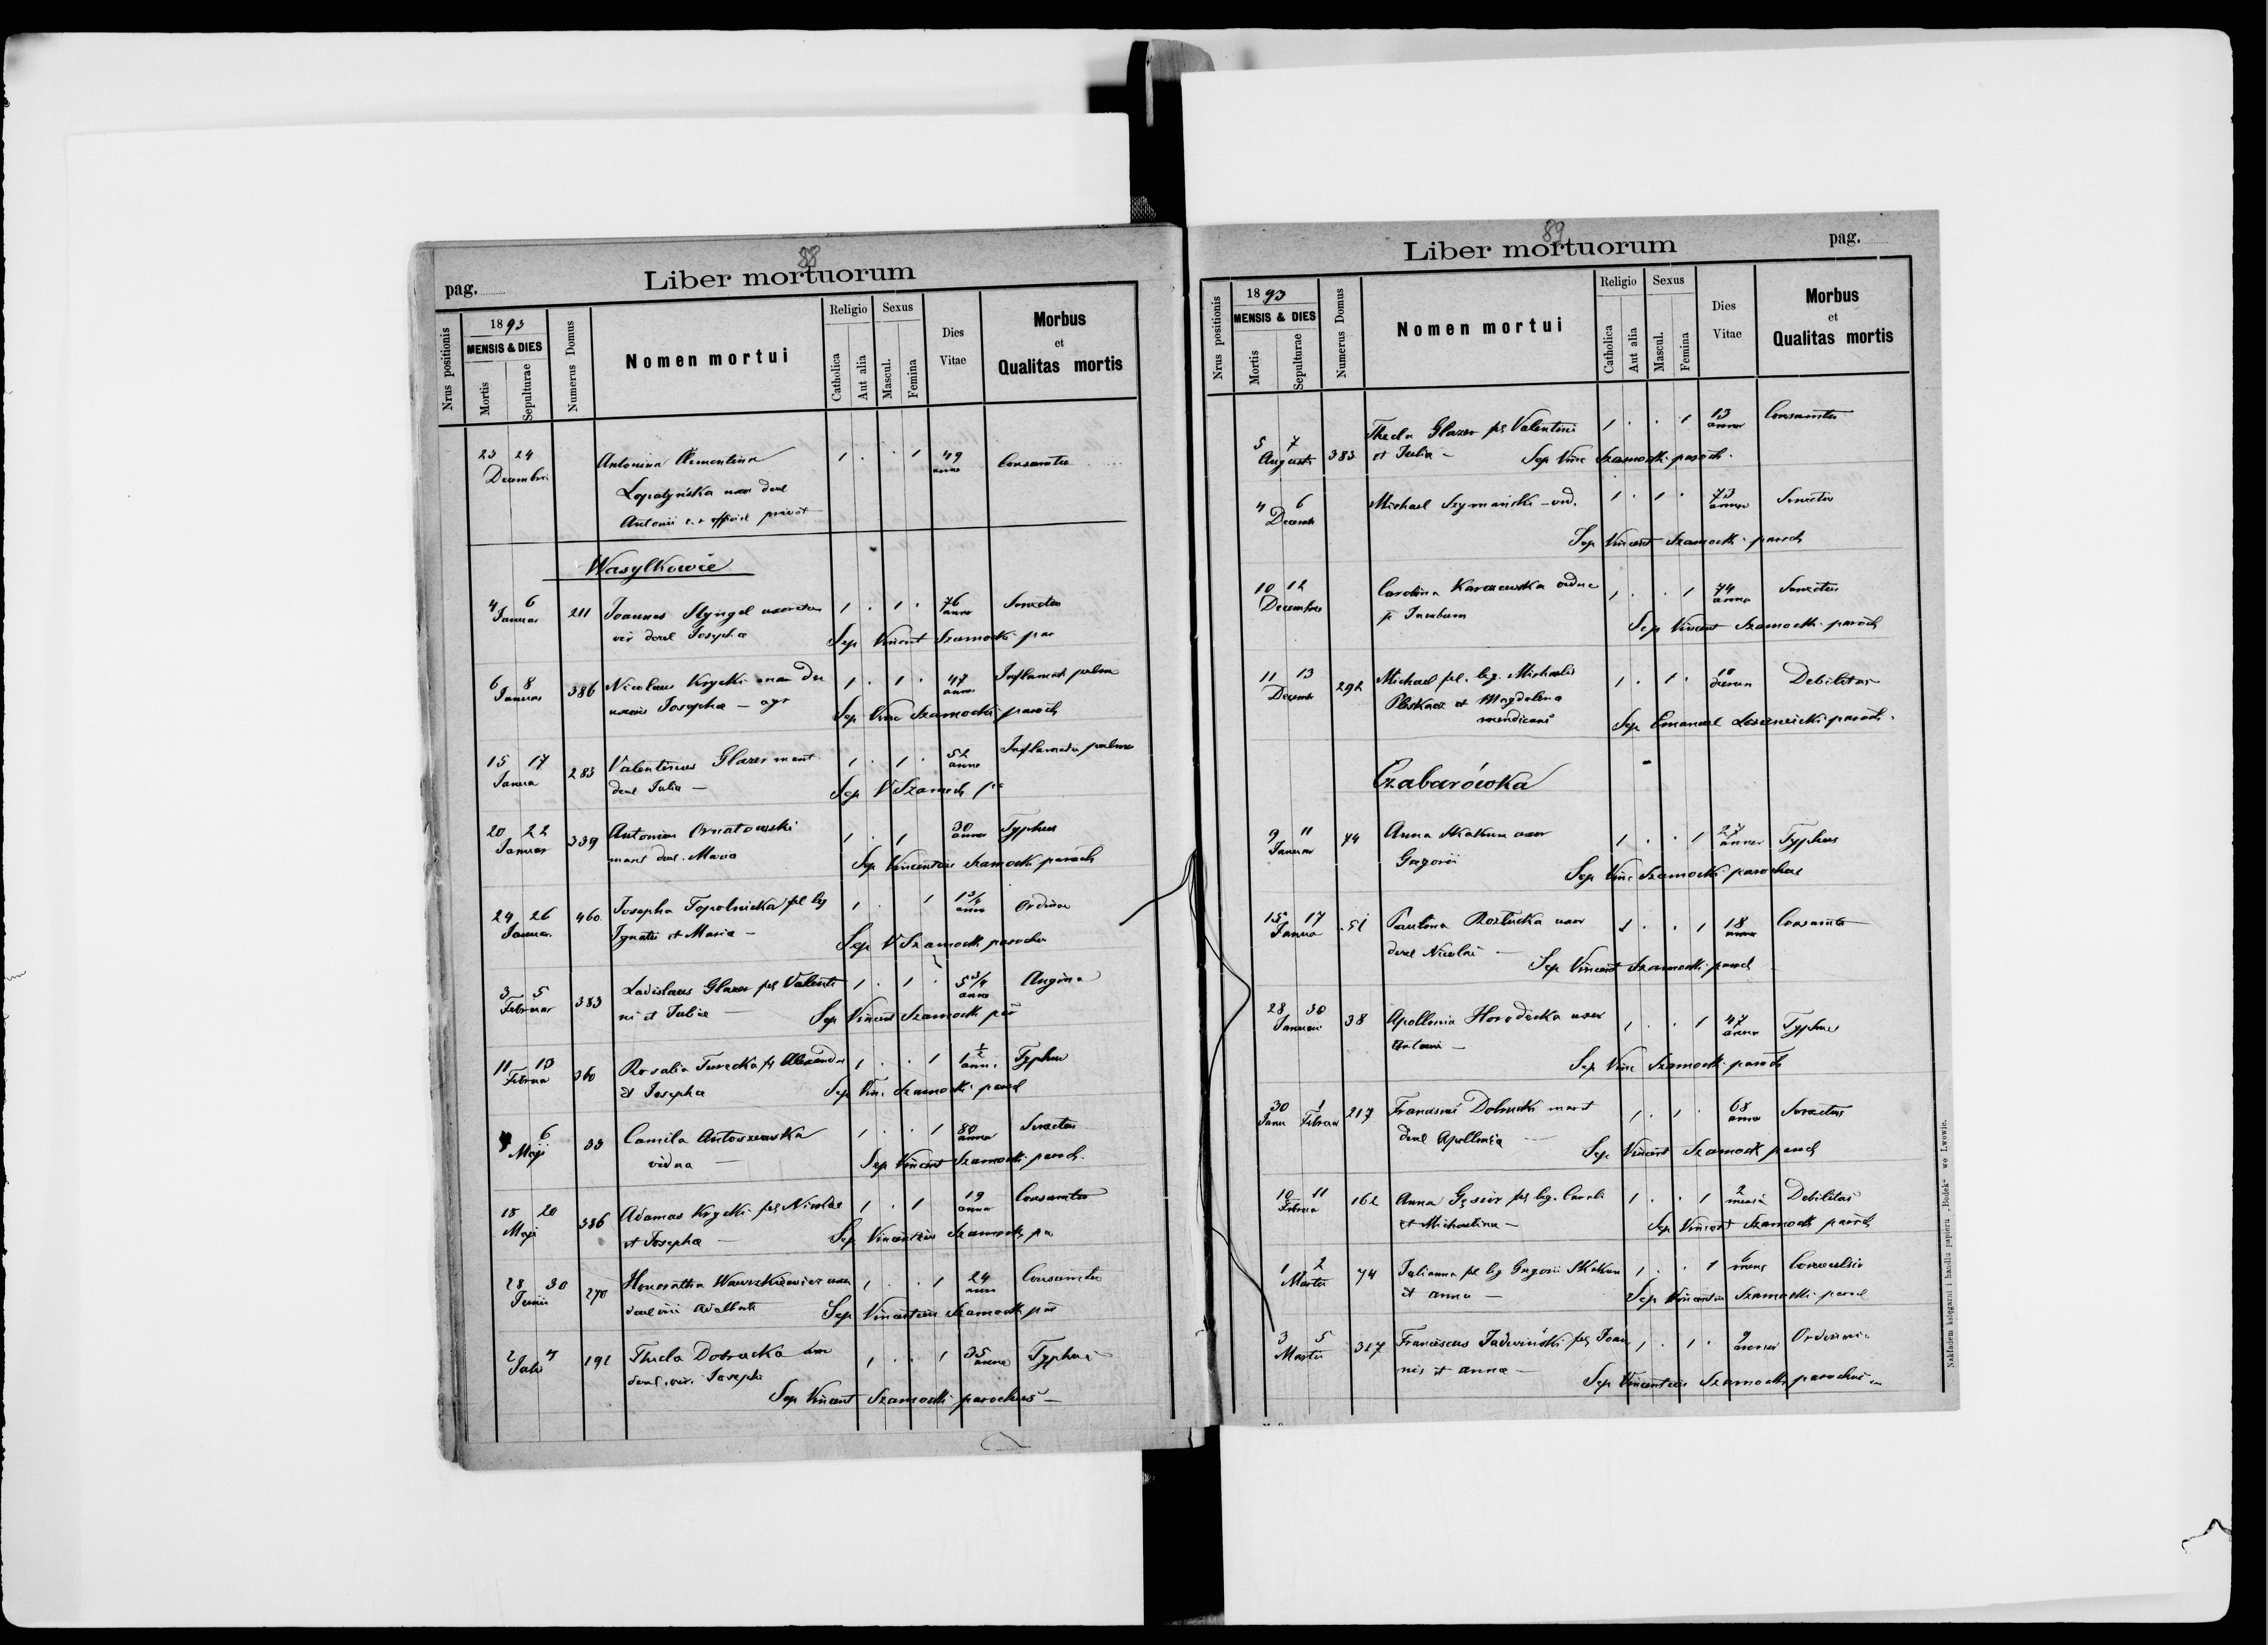 88
Liber mortuorum
pag.
Nrus positionis
1893
MENSIS & DIES
Mortis
Sepulturae
Numerus Domus
Nomen mortui
Religio
Catholica
Aut alia
Sexus
Mascul.
Femina
Dies Vitae
Morbus
et
Qualitas mortis
23 24 Antonina Clementina 1 . . 1 49 Consumtio
Decembris anno
Łopatyńska uxor
Antonii official privat
Wasylkowce
4 6 211 Joannes 1 . 1 . 76 Senectus
Januar anno
vir Josepha Sep Vincent Szamocki par
6 8 386 Nicolaus Krycki 1 . 1 . 47 Inflamat pulm
Januar anno
uxoris Josepha — agr Sep Vinc Szamocki paroch
15 17 283 Valentinus Glazer marit 1 . 1 . 52 Inflamatio pulmo
Janua anno
Julia — Sep V Szamock pa
20 22 339 Antonius Ornatowski 1 . 1 30 Typhus
Januar annor
marit Maria Sep Vincentius Szamocki paroch
24 26 460 Josepha Topolnicka fil leg 1 . 1 1 3/4
Januar anno
Ignatii et Maria — Sep V Szamocki parochu
3 5 383 Ladislaus Glazer fil Valenti 1 . 1 . 5 3/4 Angina
Februar anno
ni et Julia — Sep Vincent Szamock par
11 13 360 Rosalia Turecka fil Alexandri 1 . . 1 1 1/2 Typhus
Februa anni
et Josepha Sep Vinc Szamocki paroch
4 6 33 Camila Antoszewska 1 . . 1 80 Senectus
Maji annor
vidua — Sep Vincent Szamocki paroch
18 20 386 Adamas Krycki fil Nicolai 1 . 1 19 Consumtio
Maji anno
et Josepha — Sep Vincentius Szamock pa
28 30 270 Honoratha Wawrzkiewicz uxor 1 . . 1 24 Consumtio
Junii anno
viri Adalberti Sep Vincentius Szamock par
2 4 192 Thecla Dobrucka 1 . . 1 35 Typhus
Juli anno
vir. Josephi
Sep Vincent Szamocki parochus —
89
Liber mortuorum
pag.
Nrus positionis
1893
MENSIS & DIES
Mortis
Sepulturae
Numerus Domus
Nomen mortui
Religio
Catholica
Aut alia
Sexus
Mascul.
Femina
Dies Vitae
Morbus
et
Qualitas mortis
5 7 383 Thecla Glazer fil Valentini 1 . . 1 13 Consumtio
Augusti annor
et Julia — Sep Vinc Szamocki paroch.
4 6 Michael Szymański — vid. 1 . 1 . 73 Senectus
Decemb annor
Sep Vincent Szamocki paroch
10 12 Carolina Karczewska vidua 1 . . 1 74 Senectus
Decembris anno
p Jacobum Sep Vincent Szamocki paroch
11 13 292 Michael fil. leg. Michaelis 1 . 1 . 10 Debilitas
Decemb dierum
et Magdalena
mendicans Sep Emanuel paroch.
Czabarówka
9 11 74 Anna Skakun uxor 1 . . 1 27 Typhus
Januar annor
Gregorii Sep Vinc Szamocki parochus
15 17 51 Paulina Roztucka uxor 1 . . 1 18 Consumtio
Janua anno
Nicolai — Sep Vincent Szamocki paroch
28 30 38 Apollonia Horodecka uxor 1 . . 1 47 Typhus
Januar annor
Antoni — Sep Vinc Szamocki paroch
30 1 217 Franciscus Dobrucki marit 1 . 1 . 68 Senectus
Janu Februar anno
Apollonia — Sep Vincent Szamock paroch
10 11 162 Anna Gęsior fil leg. Caroli 1 . . 1 2 Debilitas
Februa mensi
et Michaelina — Sep Vincent Szamocki paroch
1 2 74 Julianna fil leg Gregorii Skakun 1 . . 1 6 Convulsio
Martii mens
et Anna — Sep Vincentiu Szamocki paroch
3 5 327 Franciscus Jadwiński fil Joan 1 . 1 . 9
Martii annor
nis et Anna — Sep Vincentius Szamocki parochus
Nakładem księgarni i handlu papieru „Bodek“ we Lwowie.